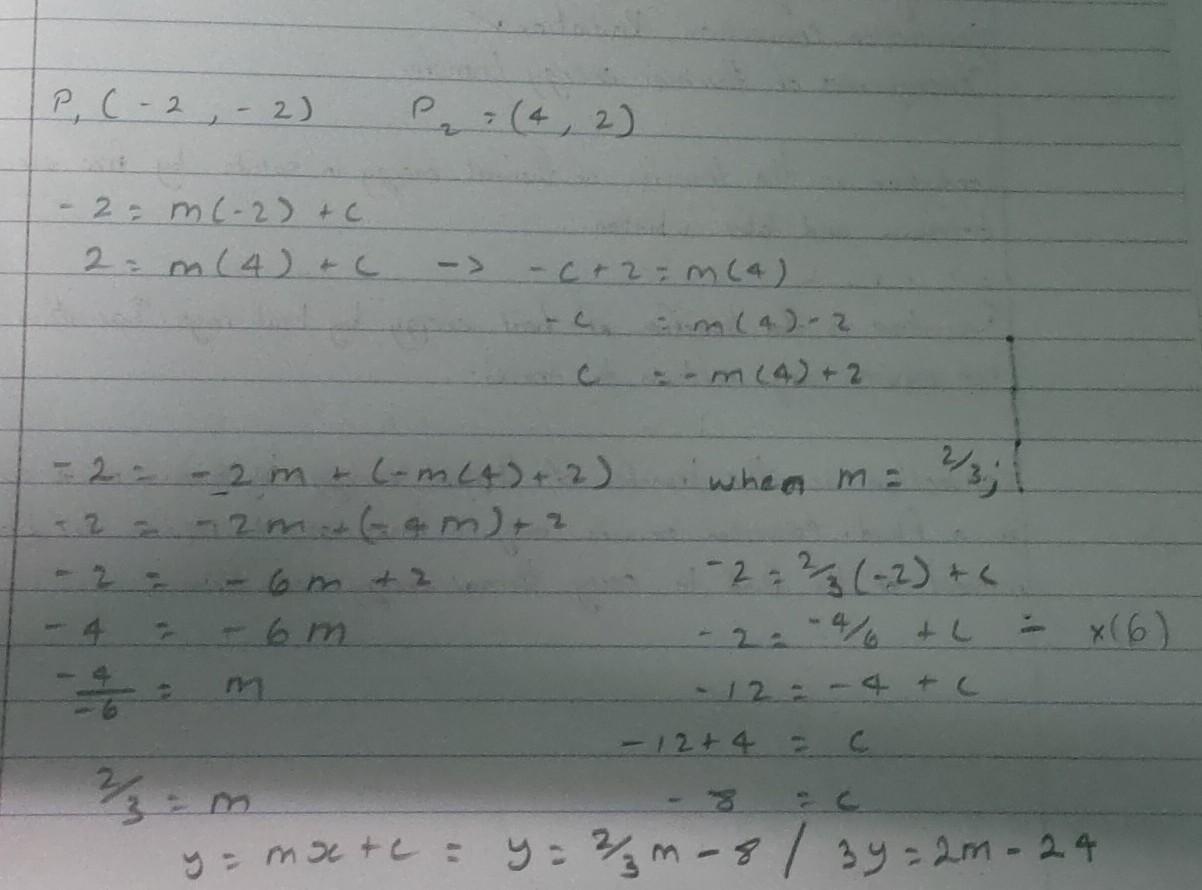 P₁ (-2, -2) P₂ = (4, 2)
-2 = m(-2) + c
2 = m(4) + c -> -c + 2 = m(4)
-c = m(4) - 2
c = -m(4) + 2
-2 = -2m + (-m(4) + 2)
-2 = -2m + (-4m) + 2
-2 = -6m + 2
-4 = -6m
-4/-6 = m
2/3 = m
when m = 2/3;
-2 = 2/3(-2) + c
-2 = -4/6 + c = x(6)
-12 = -4 + c
-12 + 4 = c
-8 = c
y = mx + c = y = 2/3m - 8 / 3y = 2m - 24